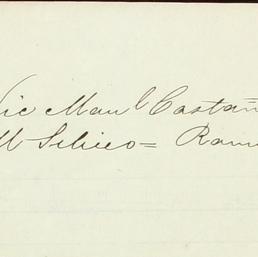 Lic Manl Castañ
M Siliceo = Ram